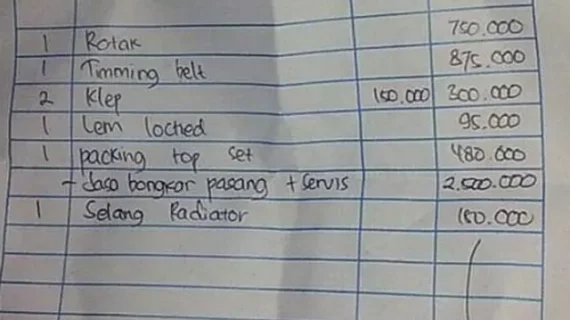 1 Rotak 750.000
1 Timming belt 875.000
2 Klep 150.000 300.000
1 Lem loched 95.000
1 packing top set 480.000
- Jasa bongkar pasang + servis 2.500.000
1 Selang Radiator 150.000